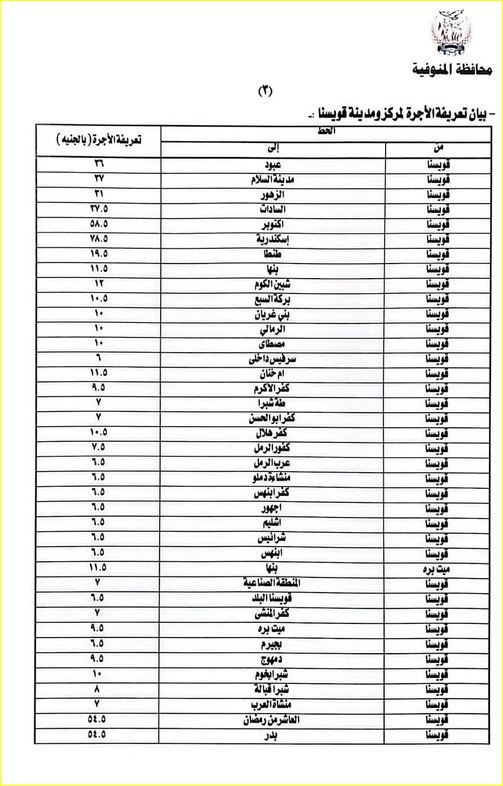 محافظة المنوفية
(٣)
- بيان تعريفة الأجرة لمركز ومدينة قويسنا :-
الخط تعريفة الأجرة (بالجنيه)
من إلى
قويسنا عبود ٣٦
قويسنا مدينة السلام ٣٧
قويسنا الزهور ٣١
قويسنا السادات ٣٧.٥
قويسنا اكتوبر ٥٨.٥
قويسنا إسكندرية ٧٨.٥
قويسنا طنطا ١٩.٥
قويسنا بنها ١١.٥
قويسنا شبين الكوم ١٢
قويسنا بركة السبع ١٠.٥
قويسنا بني غريان ١٠
قويسنا الرمالي ١٠
قويسنا مصطاى ١٠
قويسنا سرفيس داخلى ٦
قويسنا ام خنان ١١.٥
قويسنا كفر الأكرم ٩.٥
قويسنا طه شبرا ٧
قويسنا كفر ابو الحسن ٧
قويسنا كفر هلال ١٠.٥
قويسنا كفور الرمل ٧.٥
قويسنا عرب الرمل ٦.٥
قويسنا منشاءة دملو ٦.٥
قويسنا كفر ابنهس ٦.٥
قويسنا اجهور ٦.٥
قويسنا اشليم ٦.٥
قويسنا شرانيس ٦.٥
قويسنا ابنهس ٦.٥
ميت بره بنها ١١.٥
قويسنا المنطقة الصناعية ٧
قويسنا قويسنا البلد ٦.٥
قويسنا كفر المنشى ٧
قويسنا ميت بره ٩.٥
قويسنا بجيرم ٦.٥
قويسنا دمهوج ٩.٥
قويسنا شبرا بخوم ١٠
قويسنا شبرا قبالة ٨
قويسنا منشاة العرب ٧
قويسنا العاشر من رمضان ٥٤.٥
قويسنا بدر ٥٤.٥